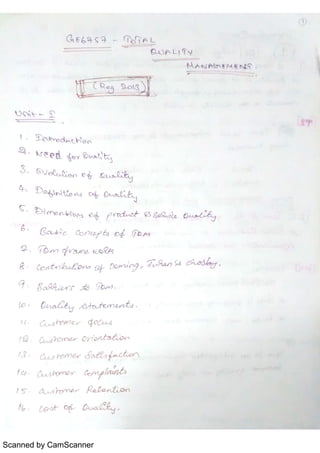 ①
GE6757 - TOTAL
QUALITY
MANAGEMENT.
(Reg 2013)
Unit - I
1. Introduction
2. Need for Quality
3. Evolution of Quality
4. Definitions of Quality
5. Dimensions of product & Service Quality.
6. Basic Concepts of TQM
7. TQM frame work
8. Contributions of Deming, Juran & Crosby.
9. Barriers to TQM.
10. Quality statements.
11. Customer focus
12. Customer Orientation
13. Customer Satisfaction
14. Customer Complaints
15. Customer Retention
16. Cost of Quality.
Scanned by CamScanner